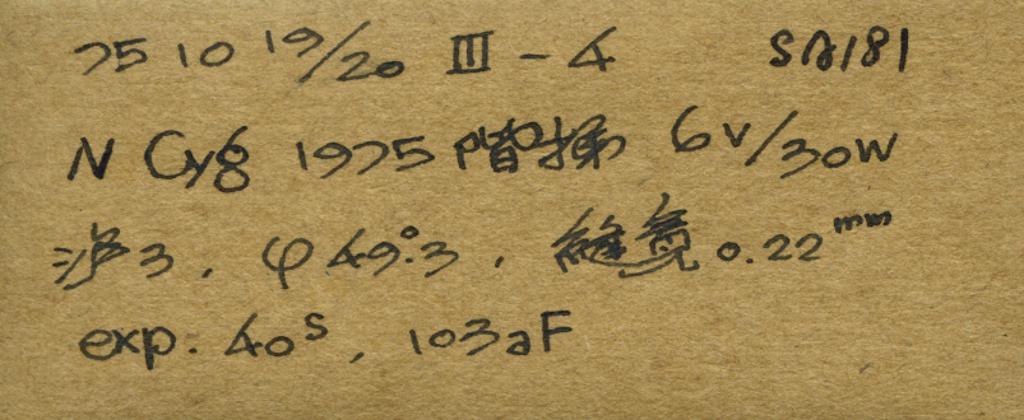 75 10 19/20 III - 4 SA181
N Cyg 1975 階梯 6V/30W
3, φ 49°.3, 縫寬 0.22mm
exp: 40s, 103aF